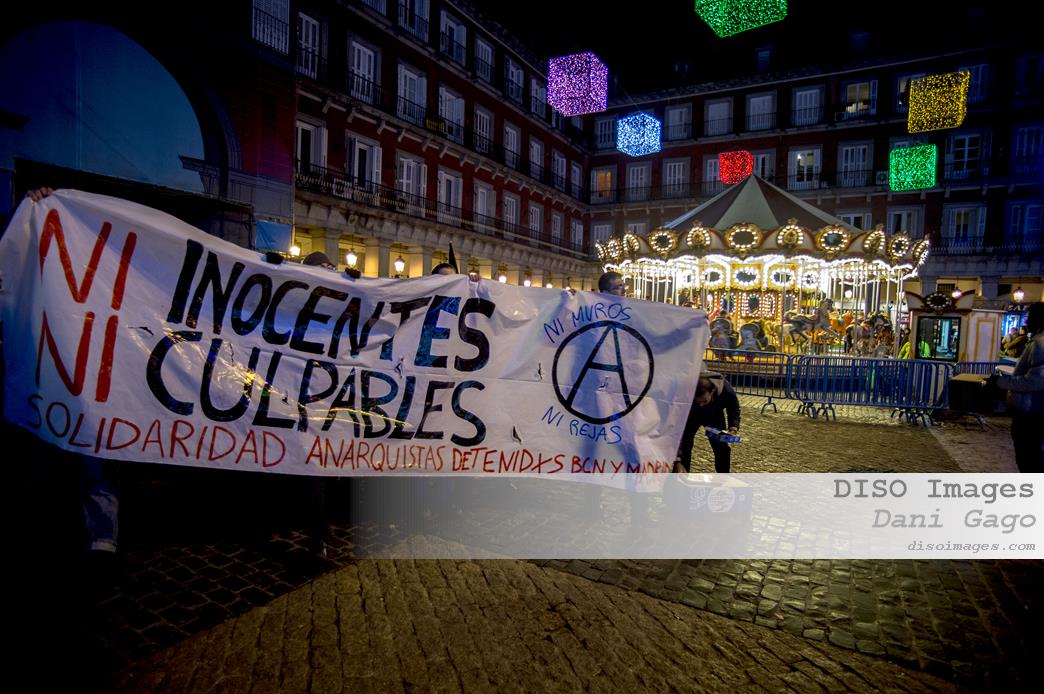 NI INOCENTES
NI CULPABLES
SOLIDARIDAD ANARQUISTAS DETENIDXS BCN Y MADRID
NI MUROS
A
NI REJAS
DISO Images
Dani Gago
disoimages.com